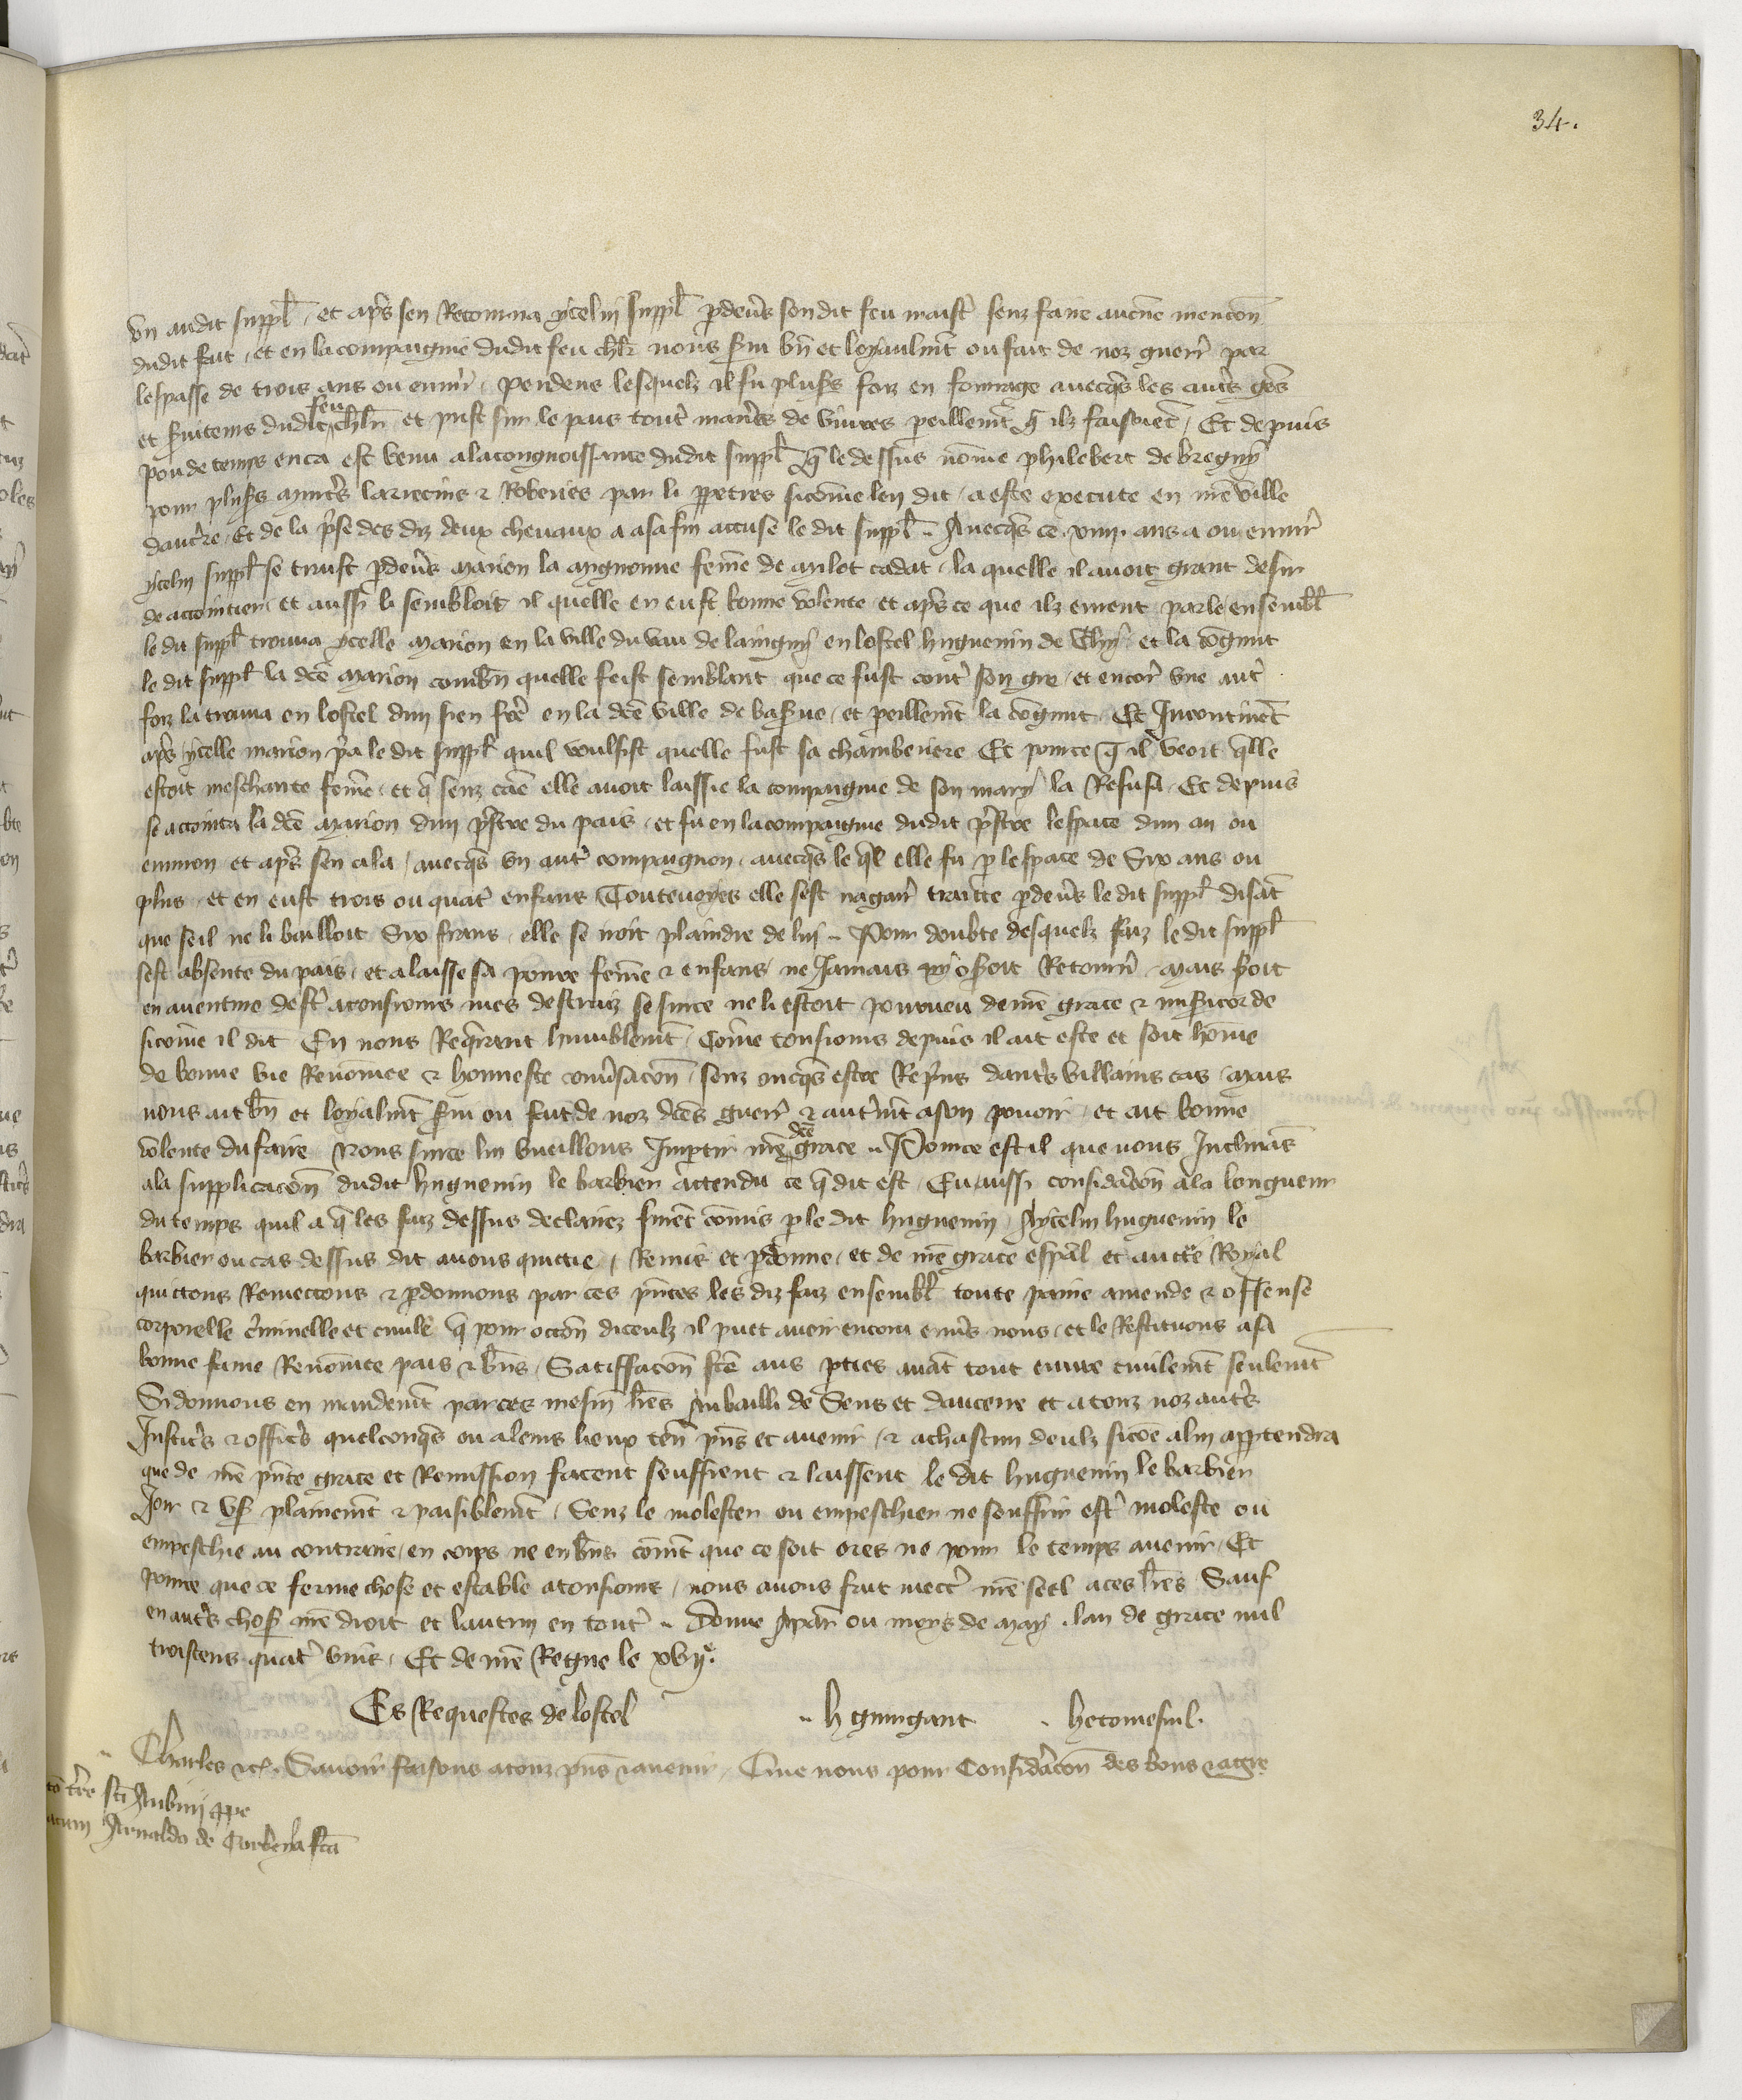 34.
un audit suppl̄ / et ap̄s sen Retourna ycelui suppl̄ p̄deũs son dit feu maist̃ senz faire aucũe mencõn
dudit fait / et en la compaignie dudit feu chlr̄ nous s̃ui bn̄ et loyaulmẽt ou fait de noz guerr̃ par
lespasse de trois ans ou enuir̃ / pendens lesquelz il fu plus̃s foiz en fourrage auecqs̃ les aut̃s gẽs
et s̃uiteurs dudit feu chl̄r et prist sur le pais tout̃ mañes de viures pareillemẽt q̃ ilz faisoiẽt / Et depuis
pou de temps enca est venu a la congnoissance dudit suppl̄ q̃ le dessus nõme philebert de bregny
pour plus̃s murt̃s larrecins & Roberies par li ppetres sicõme len dit / a este execute en nr̃e ville
dauc̃re / Et de la p̃se des diz deux cheuaux a a sa fin accuse le dit suppl̄ .. Auecqs̃ ce . viij . ans a ou enuir̃
ycelui suppl̄ se traist p̄deũs marion la mignonne fem̃e de milot cadat / la quelle il auoit grant desir
de accointier et aussi li sembloit il quelle en eust bonne volente et ap̄s ce que ilz eurent parle ensembl̄
le dit suppl̄ trouua ycelle marion en la ville du vau de laingny en lostel huguenin de et la cõgnut
le dit suppl̄ la dc̄e marion combn̄ quelle feist semblant que ce fust cont̃ son gre / et encor̃ une aut̃
foiz la trouua en lostel dun sien fr̃e en la dc̄e ville de / et p̄eillemẽt la cõgnut / Et Incontinẽt
ap̄s / ycelle marion p̃a le dit suppl̄ quil voulsist quelle fust sa chamberiere Et pource q̃ il veoit q̃lle
estoit meschante fem̃e / et q̃ senz cãe elle auoit laissie la compaignie de son mary la Refusa / Et depuis
se accointa la dc̄e marion dun p̃stre du pais / et fu en la compaignie dudit p̃stre lespace dun an ou
enuiron et ap̄s sen ala / auecqs̃ un aut̃ compaignon / auecqs̃ le q̃l elle fu p̄ lespace de Six ans ou
plus / et en eust trois ou quat̃ enfans Touteuoyes elle sest nagair̃ traicte p̄deũs le dit suppl̄ disãt
que seil ne li bailloit Six frans / elle se iroit plaindre de lui .. Pour doubte desquelz faiz le dit suppl̄
sest absente du pais / et a laisse sa poure fem̃e & enfans / ne Jamais ny oseroit Retourñ / mais seroit
en auenture dest̃ a tousiours mes destruiz se sur ce ne li estoit pourueu de nr̃e grace & mis̃icorde
sicõme il dit En nous Req̃rant humblemẽt / Cõme tousiours depuis il ait este et soit hõme
de bonne vie Renõmee & honneste conũsacõn / senz oncqs̃ estre Rep̃ns daut̃s villains cas / Mais
nous ait bn̄ et loyalmẽt s̃ui ou fait de noz dc̄es guerr̃ & aut̃mẽt a son pouoir / et ait bonne
võlente du faire Nous sur ce lui vueillons Impartir nr̃e dc̄e grace .. Pource est il que nous Inclinãs
a la supplicacõn dudit huguenin le barbier attendu ce q̃ dit est / Eu aussi considãcõn a la longueur
du temps quil a q̃ les faiz dessus declariez furẽt cõmis p̄ le dit huguenin / A ycelui huguenin le
barbier ou cas dessus dit auons quictie / Remis et p̄donne / et de nr̃e grace esp̃al et auct̃e Royal
quictons Remectons & p̄donnons par ces p̃ntes les diz faiz ensembl̄ toute paine amende & offense
corporelle c̃iminelle et ciuile q̃ pour occõn diceulz il puet auoir encoru enũs nous / et le Restituons a sa
bonne fame Renõmee pais & bn̄s / Satiffacõn fc̄e aus pties auãt tout euure ciuilemẽt seulemẽt
Si donnons en mandemẽt par ces mesm̃ lr̃es Au bailli de Sens et daucerre et a touz noz aut̃s
Justic̃s & offic̃s quelconqs̃ ou a leurs lieux teñ p̃ns et auenir / & a chascun deulz sicõe a lui app̄tendra
que de nr̃e p̃nte grace et Remission facent seuffrent & laissent le dit huguenin le barbier
Joir & us̃ plainemẽt & paisiblemẽt / Senz le molester ou empeschier ne souffrir est̃ moleste ou
empeschie au contraire / en corps ne en bn̄s cõmẽt que ce soit ores ne pour le temps auenir / Et
pource que ce ferme chose et estable a tousiours / nous auons fait mect̃ nr̃e seel a ces lr̃es Sauf
en aut̃s chos̃ nr̃e droit et lautruy en tout̃ .. Donne A par̃ ou moys de may . lan de grace mil
troiscens quat̃ vins / Et de nr̃e Regne le xvije.
Es Requestes de lostel .. h guingant . hetomesnil .
.. Charles &c̃ . Sauoir faisons a touz p̃ns & auenir / Que nous pour Considãcõn des bons & agre
tr̃e sc̃i Aubini
Arnaldo de Corbeya fc̃a